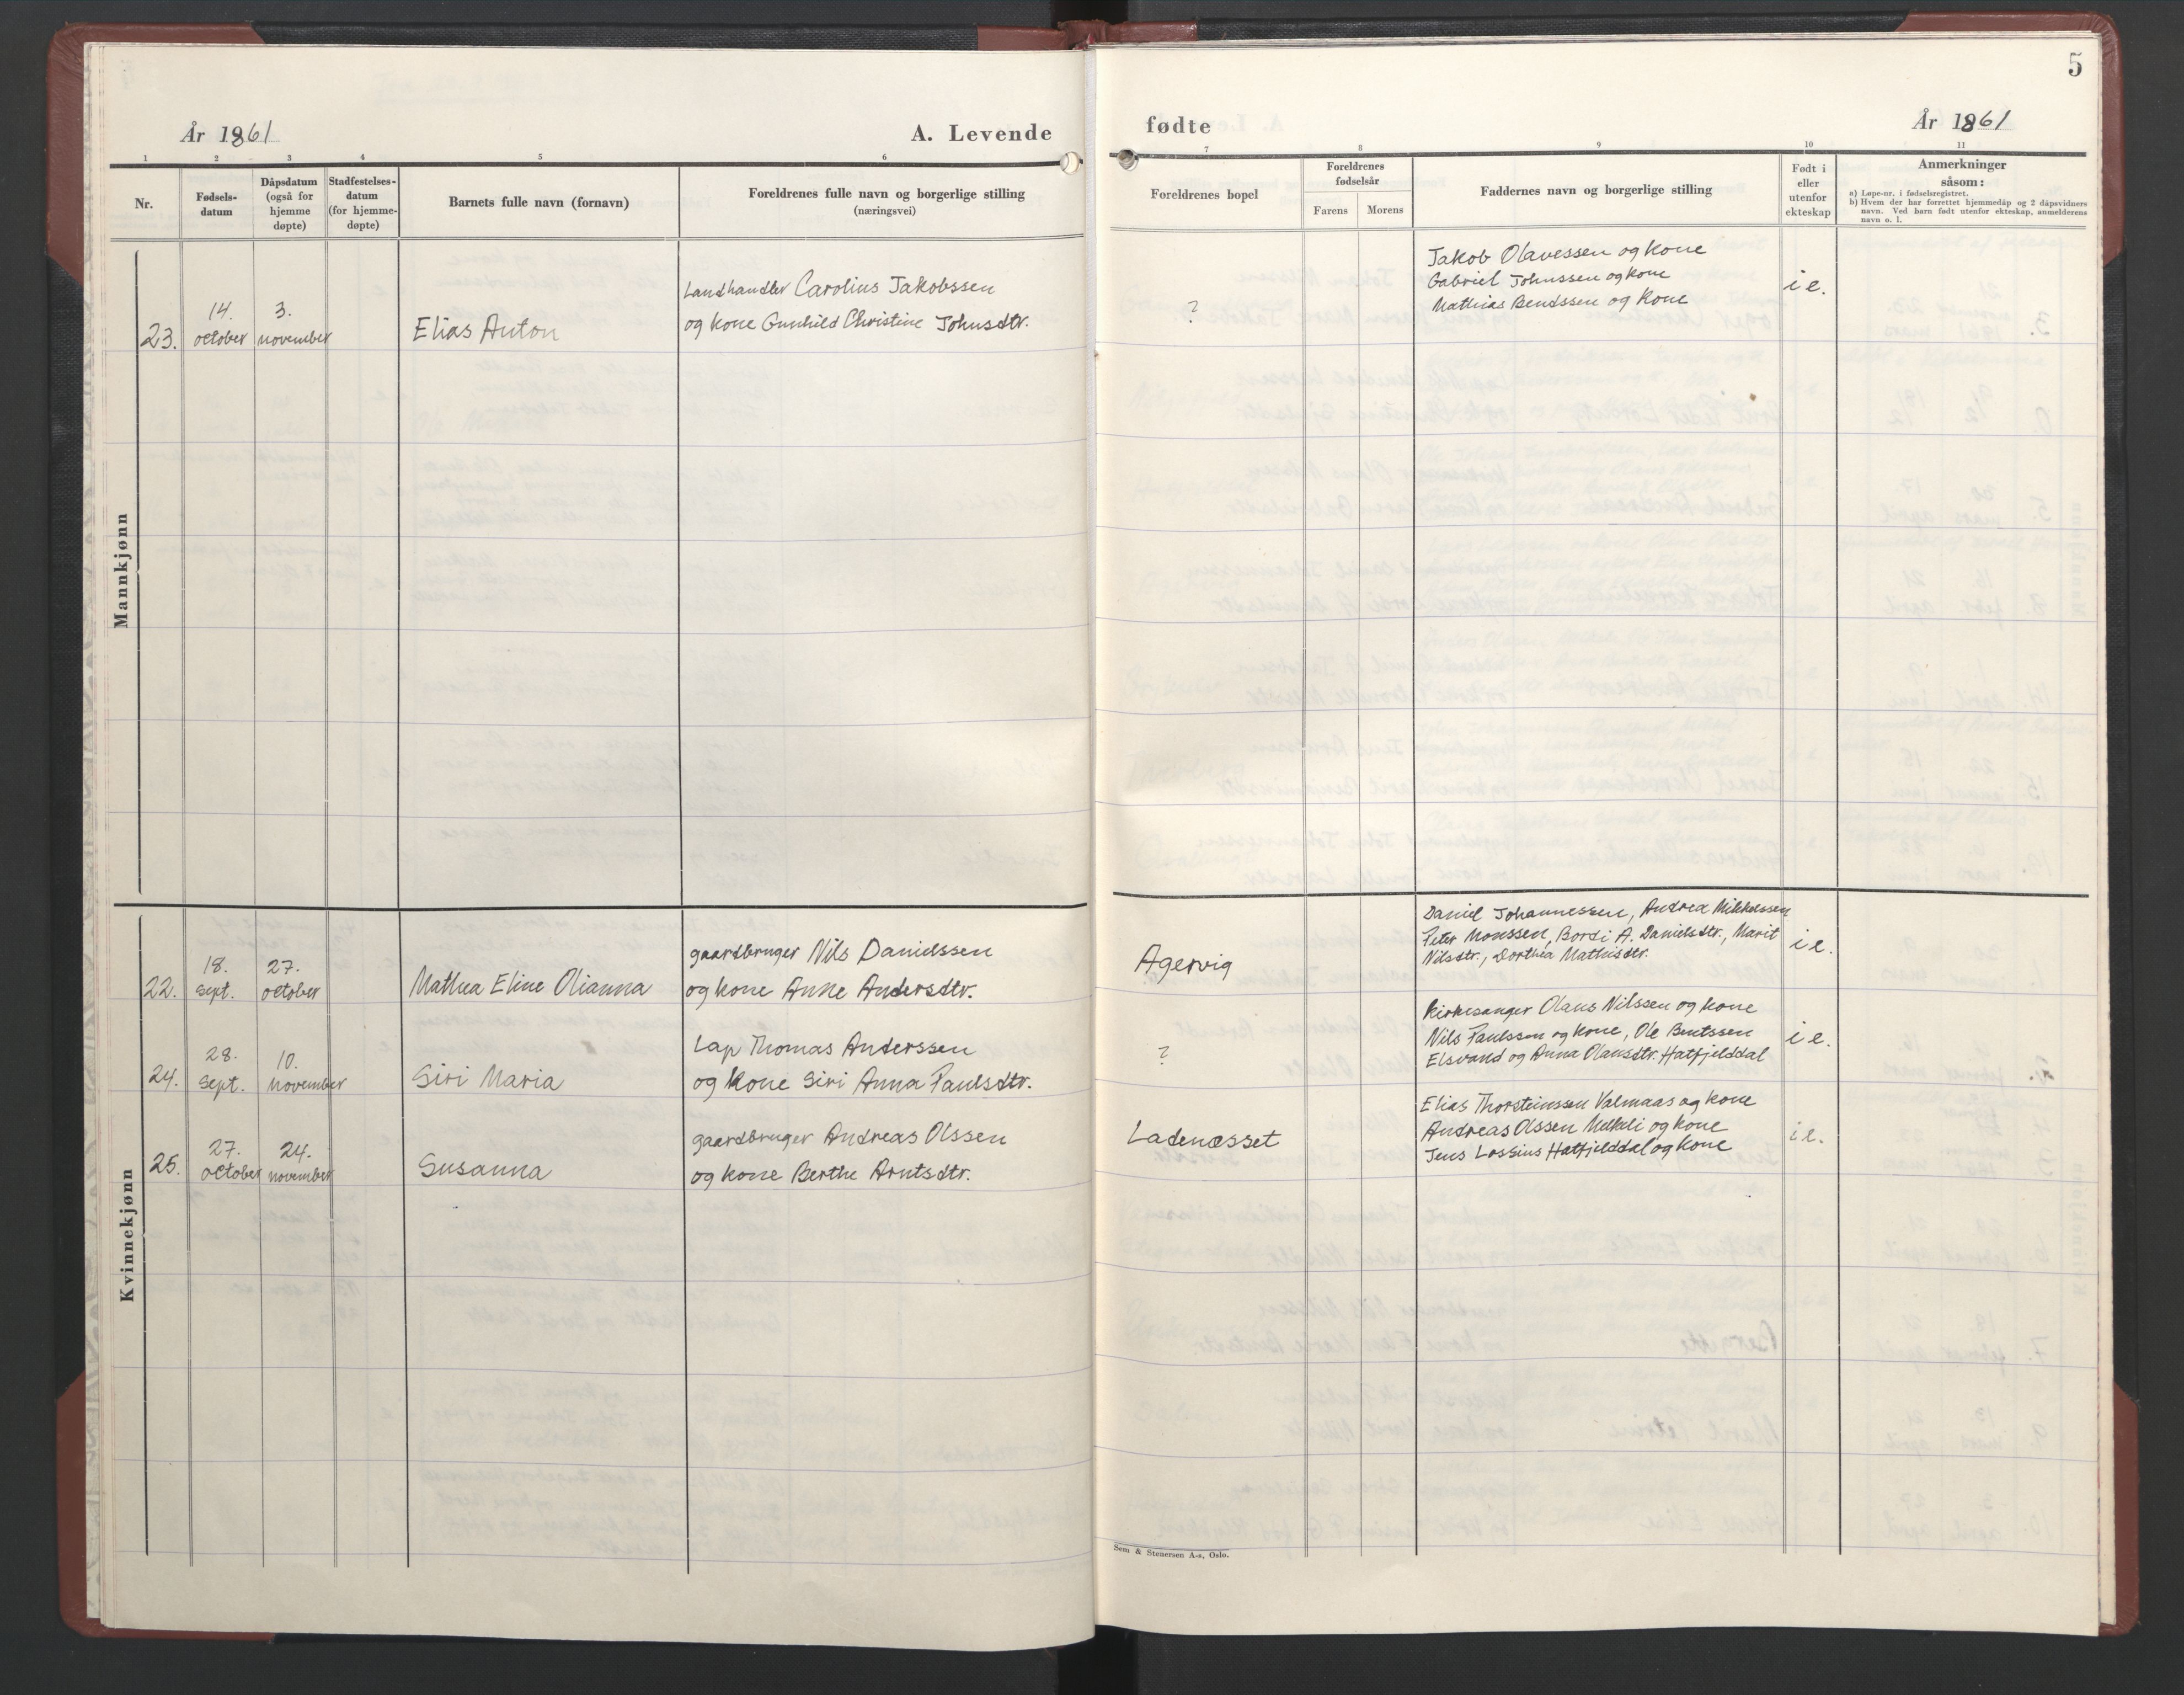 5
År 1861
A. Levende
fødte
År 1861
1 2 3 4 5 6 7 8 9 10 11
Nr.
Fødsels-
datum
Dåpsdatum
(også for
hjemme
døpte)
Stadfestelses-
datum
(for hjemme-
døpte)
Barnets fulle navn (fornavn)
Foreldrenes fulle navn og borgerlige stilling
(næringsvei)
Foreldrenes bopel
Foreldrenes
fødselsår
Farens Morens
Faddernes navn og borgerlige stilling
Født i
eller
utenfor
ekteskap
Anmerkninger
såsom:
a) Løpe-nr. i fødselsregistret.
b) Hvem der har forrettet hjemmedåp og 2 dåpsvidners
navn. Ved barn født utenfor ekteskap, anmelderens
navn o. l.
Mannkjønn
23.
14.
october
3.
november
Elias Anton
Landhandler Carolius Jakobssen
og kone Gunhild Christine Johnsdtr.
?
Jakob Olavessen og kone
Gabriel Johnssen og kone
Mathias Bendssen og kone
i e.
Kvinnekjønn
22.
18.
sept.
27.
october
Mathea Eline Olianna
gaardbruger Nils Danielssen
og kone Anne Andersdtr.
Agervig
Daniel Johannessen, Andrea Mikkelssen
Peter Monssen, Bordi A. Danielsdtr., Marit
Nilsdtr., Dorthea Mathisdtr.
i e.
24.
28.
sept.
10.
november
Siri Maria
Lap Thomas Anderssen
og kone Siri Anna Paulsdtr.
?
Kirkesanger Olaus Nilssen og kone
Nils Paulssen og kone, Ole Bentssen
Elsvand og Anna Olausdtr. Hatfjelddal
i e.
25.
27.
october
24.
november
Susanna
gaardbruger Andreas Olssen
og kone Berthe Arntsdtr.
Ladenæsset
Elias Thorsteinssen Valmaas og kone
Andreas Olssen og kone
Jens Lossius Hatfjelddal og kone
i e.
Sem & Stenersen A-s, Oslo.